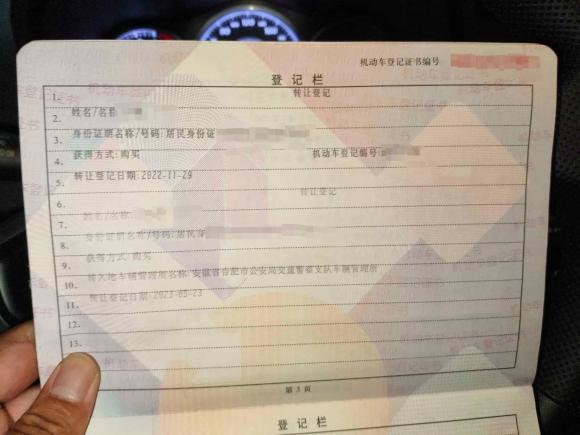 机动车登记证书编号
登记栏
1. 转让登记
2. 姓名/名称
3. 身份证明名称/号码:居民身份证
4. 获得方式:购买 机动车登记编号:
5. 转让登记日期:2022-11-29
6. 转让登记
7. 姓名/名称:
8. 身份证明名称/号码:居民身
9. 获得方式:购买
10. 转入地车辆管理所名称:安徽省合肥市公安局交通警察支队车辆管理所
11. 转让登记日期:2023-05-23
12.
13.
第 3 页
登记栏